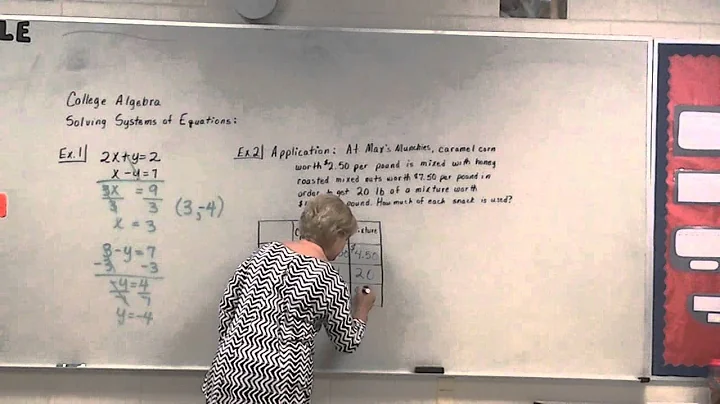 LE
College Algebra
Solving Systems of Equations:
Ex.1 2x+y=2
x-y=7
3x = 9
3 3
x = 3
(3,-4)
3-y=7
-3 -3
-y=4
y=-4
Ex.2 Application: At Max's Munchies, caramel corn
worth $2.50 per pound is mixed with honey
roasted mixed nuts worth $7.50 per pound in
order to get 20 lb of a mixture worth
$ pound. How much of each snack is used?
$4.50
20